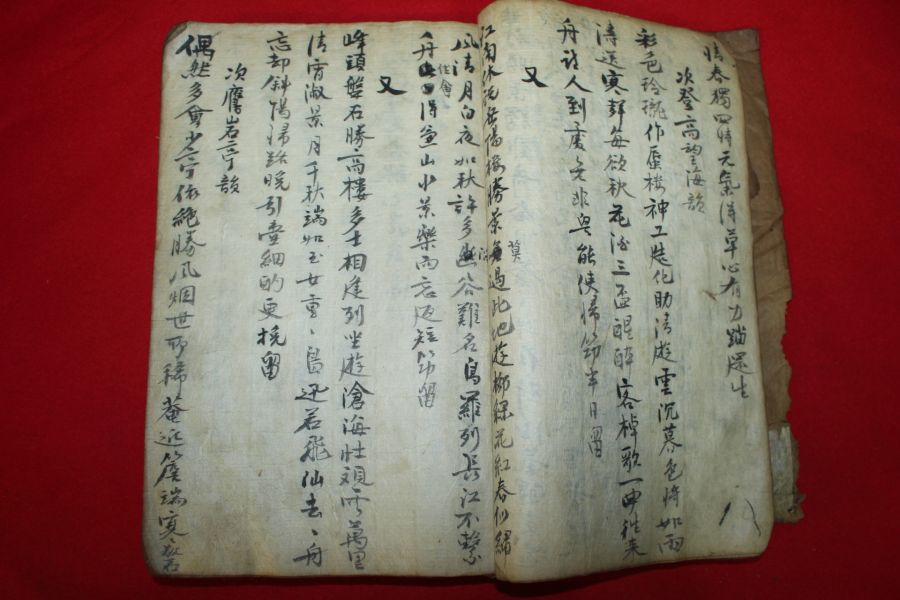 時春獨四時元氣津草心有力踏還生
次登高望海韻
彩色玲瓏作蜃樓神工造化助淸遊雲沉暮色將如雨
濤送寒聲每欲秋花酒三盃醒醉客棹歌一曲往來
舟詩人到處無非興能使歸筇半日留
又
江南休說岳陽樓勝景無過此地遊柳綠花紅春似繡
莫
風淸月白夜如秋許多幽谷難名鳥羅列長江不繫
舟 得意山水景樂而忘返短筇留
又
峰頭盤石勝高樓多士相逢列坐遊滄海壯觀 萬里
淸宵淑景月千秋端如玉女重重島迅若飛仙去去舟
忘却斜陽歸路晩引壺細酌更挽留
次鷹岩亭韻
偶然多會少亭依絶勝風烟世所稀菴近 端寒